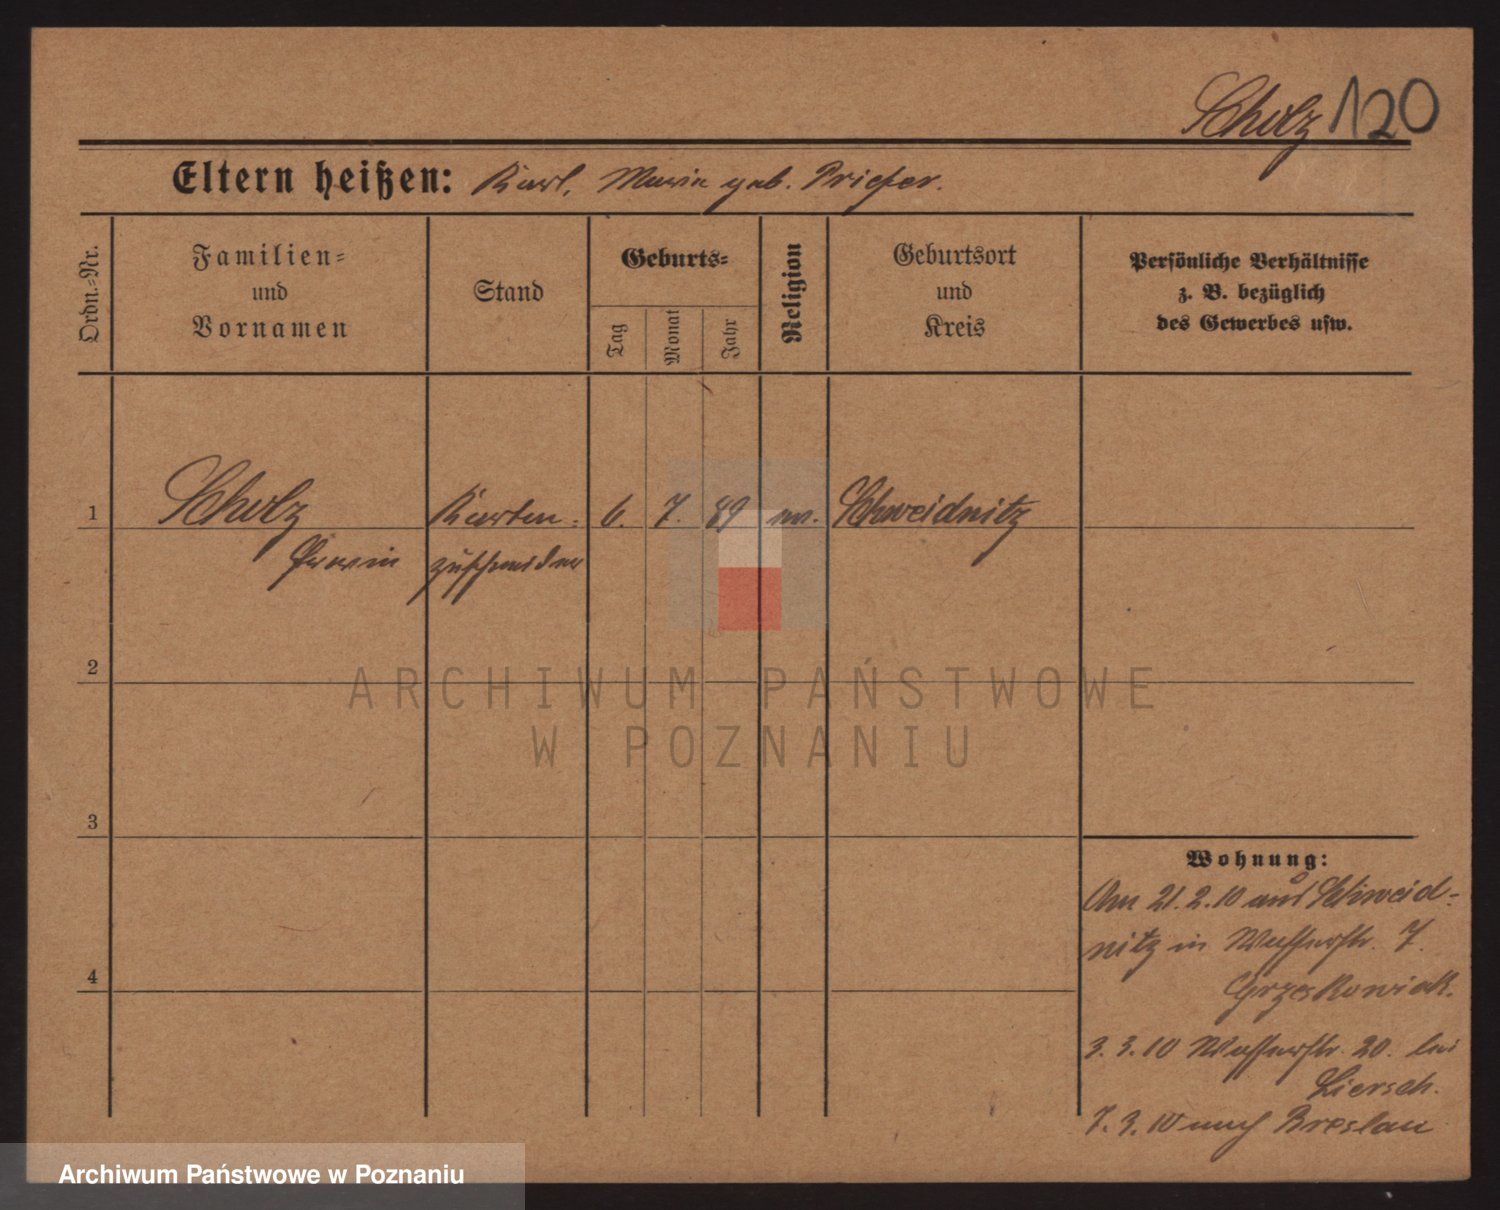 Scholz 120
Eltern heißen: Karl, Maria geb. Priefer.
Ordn.-Nr.
Familien-
und
Vornamen
Stand
Geburts-
Tag
Monat
Jahr
Religion
Geburtsort
und
Kreis
Persönliche Verhältnisse
z. B. bezüglich
des Gewerbes usw.
1 Scholz Karten- 6. 7. 89 Schweidnitz
Erwin zuschneider
2
3
4
Wohnung:
Am 21.2.10 aus Schweid-
nitz in Wasserstr. 7.
Grzeskowiak.
3.3.10 Wasserstr. 20. bei
Liersch.
7.3.10 nach Breslau
ARCHIWUM PAŃSTWOWE
W POZNANIU
Archiwum Państwowe w Poznaniu